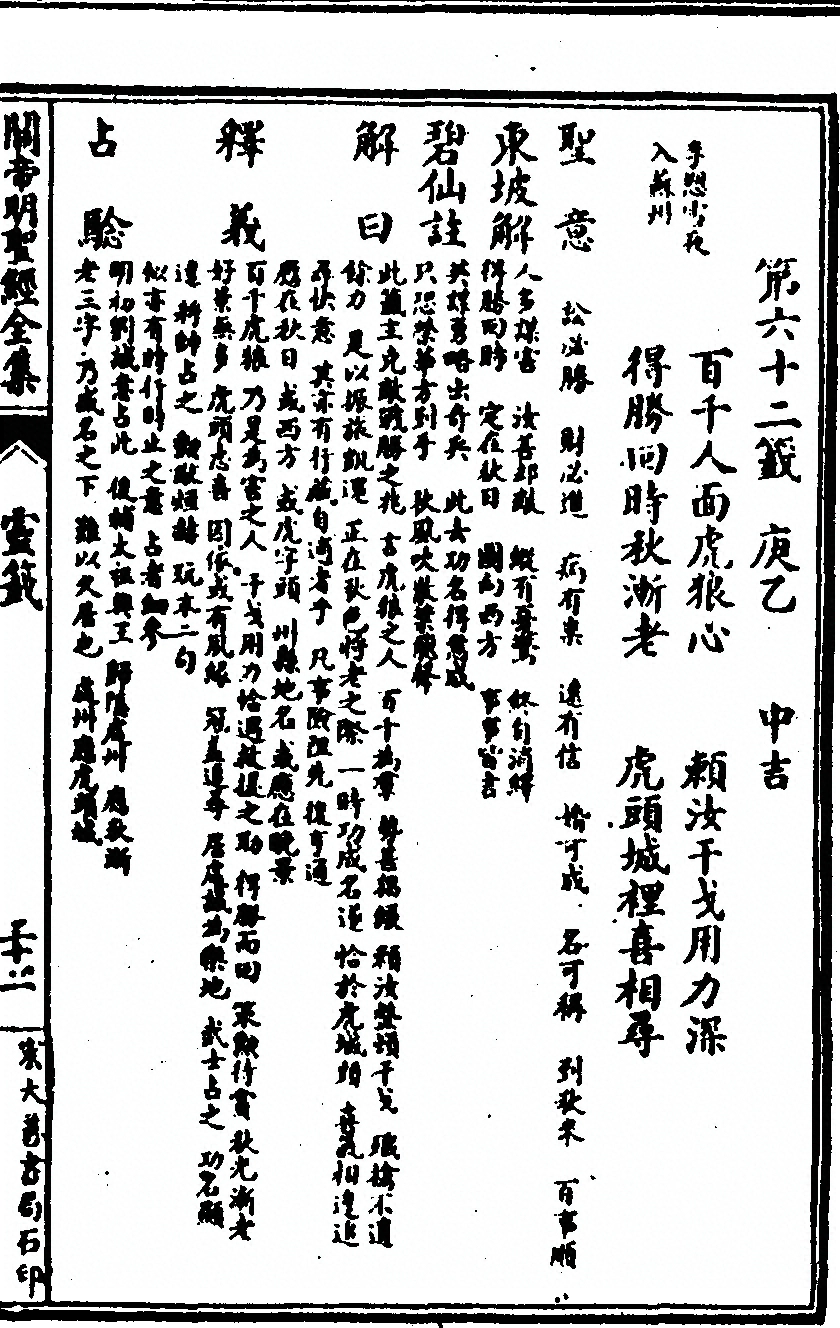 第六十二籤 庚乙 中吉
李愬雪夜
入蘇州
百千人面虎狼心 賴汝干戈用力深
得勝回時秋漸老 虎頭城裡喜相尋
聖意 訟必勝 財必進 病有祟 遠有信 婚可成 名可稱 到秋來 百事順
東坡解 人多謀害 汝善却敵 縱有憂驚 終自消釋
得勝回時 定在秋日 圖向西方 事事皆吉
碧仙註 英謀勇略出奇兵 此去功名得意成
只恐榮華方到手 秋風吹散葉飄聲
解曰 此籤主克敵戰勝之兆 言虎狼之人 百千為羣 勢甚猖獗 賴汝整頓干戈 殲擒不遺
餘力 是以振旅凱還 正在秋色將老之際 一時功成名遂 恰於虎城頭 喜氣相逢追
尋快意 其亦有行藏自適者乎 凡事險阻先 後亨通
應在秋日 或西方 或虎字頭 州縣地名 或應在晚景
釋義 百千虎狼 乃是為害之人 干戈用力 恰遇救援之助 得勝而回 策勳行賞 秋光漸老
好景無多 虎頭志喜 因依或有夙緣 冠蓋追尋 居處誠為樂地 武士占之 功名顯
達 將帥占之 勳猷烜赫 玩末二句
似亦有時行時止之意 占者細參
占驗 明初劉誠意占此 後輔太祖興王 歸隱處州 應秋漸
老三字 乃盛名之下 難以久居也 處州應虎頭城
關帝明聖經全集
靈籤
宋大善書局石印